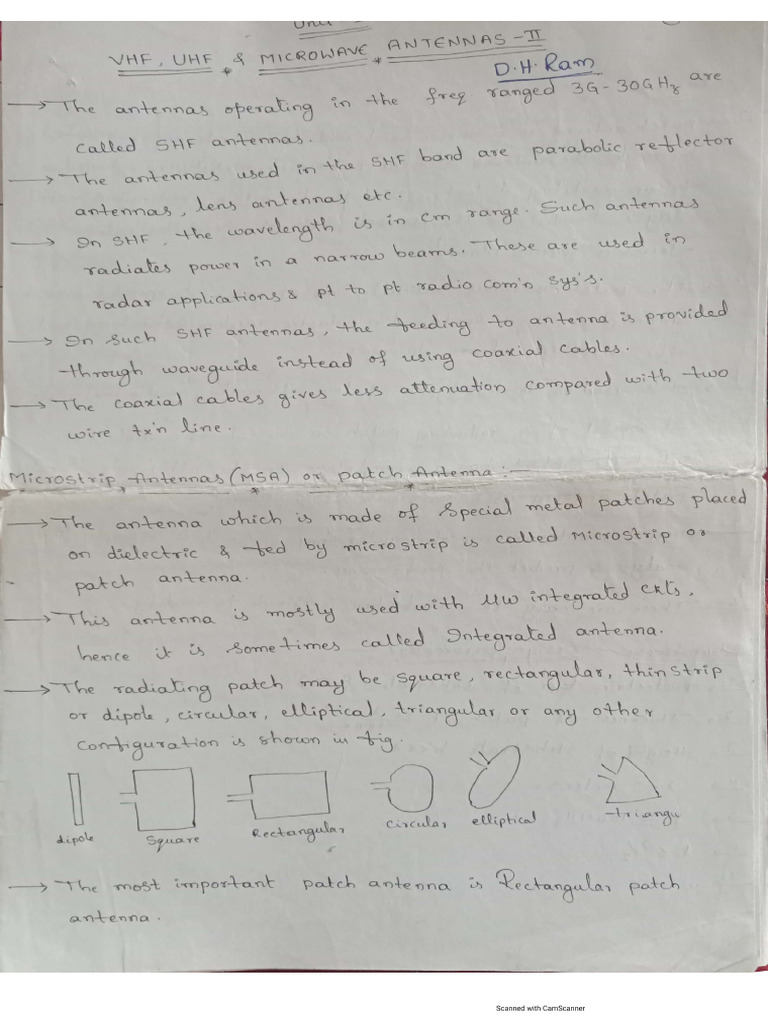 Unit
VHF, UHF & MICROWAVE ANTENNAS - II
D.H. Ram
→ The antennas operating in the freq ranged 3G-30GHz are
called SHF antennas.
→ The antennas used in the SHF band are parabolic reflector
antennas, lens antennas etc.
→ In SHF, the wavelength is in cm range. Such antennas
radiates power in a narrow beams. These are used in
radar applications & pt to pt radio com'n sys's.
→ In such SHF antennas, the feeding to antenna is provided
through waveguide instead of using coaxial cables.
→ The coaxial cables gives less attenuation compared with two
wire tx'n line.
Microstrip Antennas (MSA) or patch Antenna :-
→ The antenna which is made of special metal patches placed
on dielectric & fed by microstrip is called Microstrip or
patch antenna.
→ This antenna is mostly used with MW integrated ckts,
hence it is sometimes called Integrated antenna.
→ The radiating patch may be square, rectangular, thin strip
or dipole, circular, elliptical, triangular or any other
configuration is shown in fig.
dipole Square Rectangular circular elliptical triangu
→ The most important patch antenna is Rectangular patch
antenna.
Scanned with CamScanner